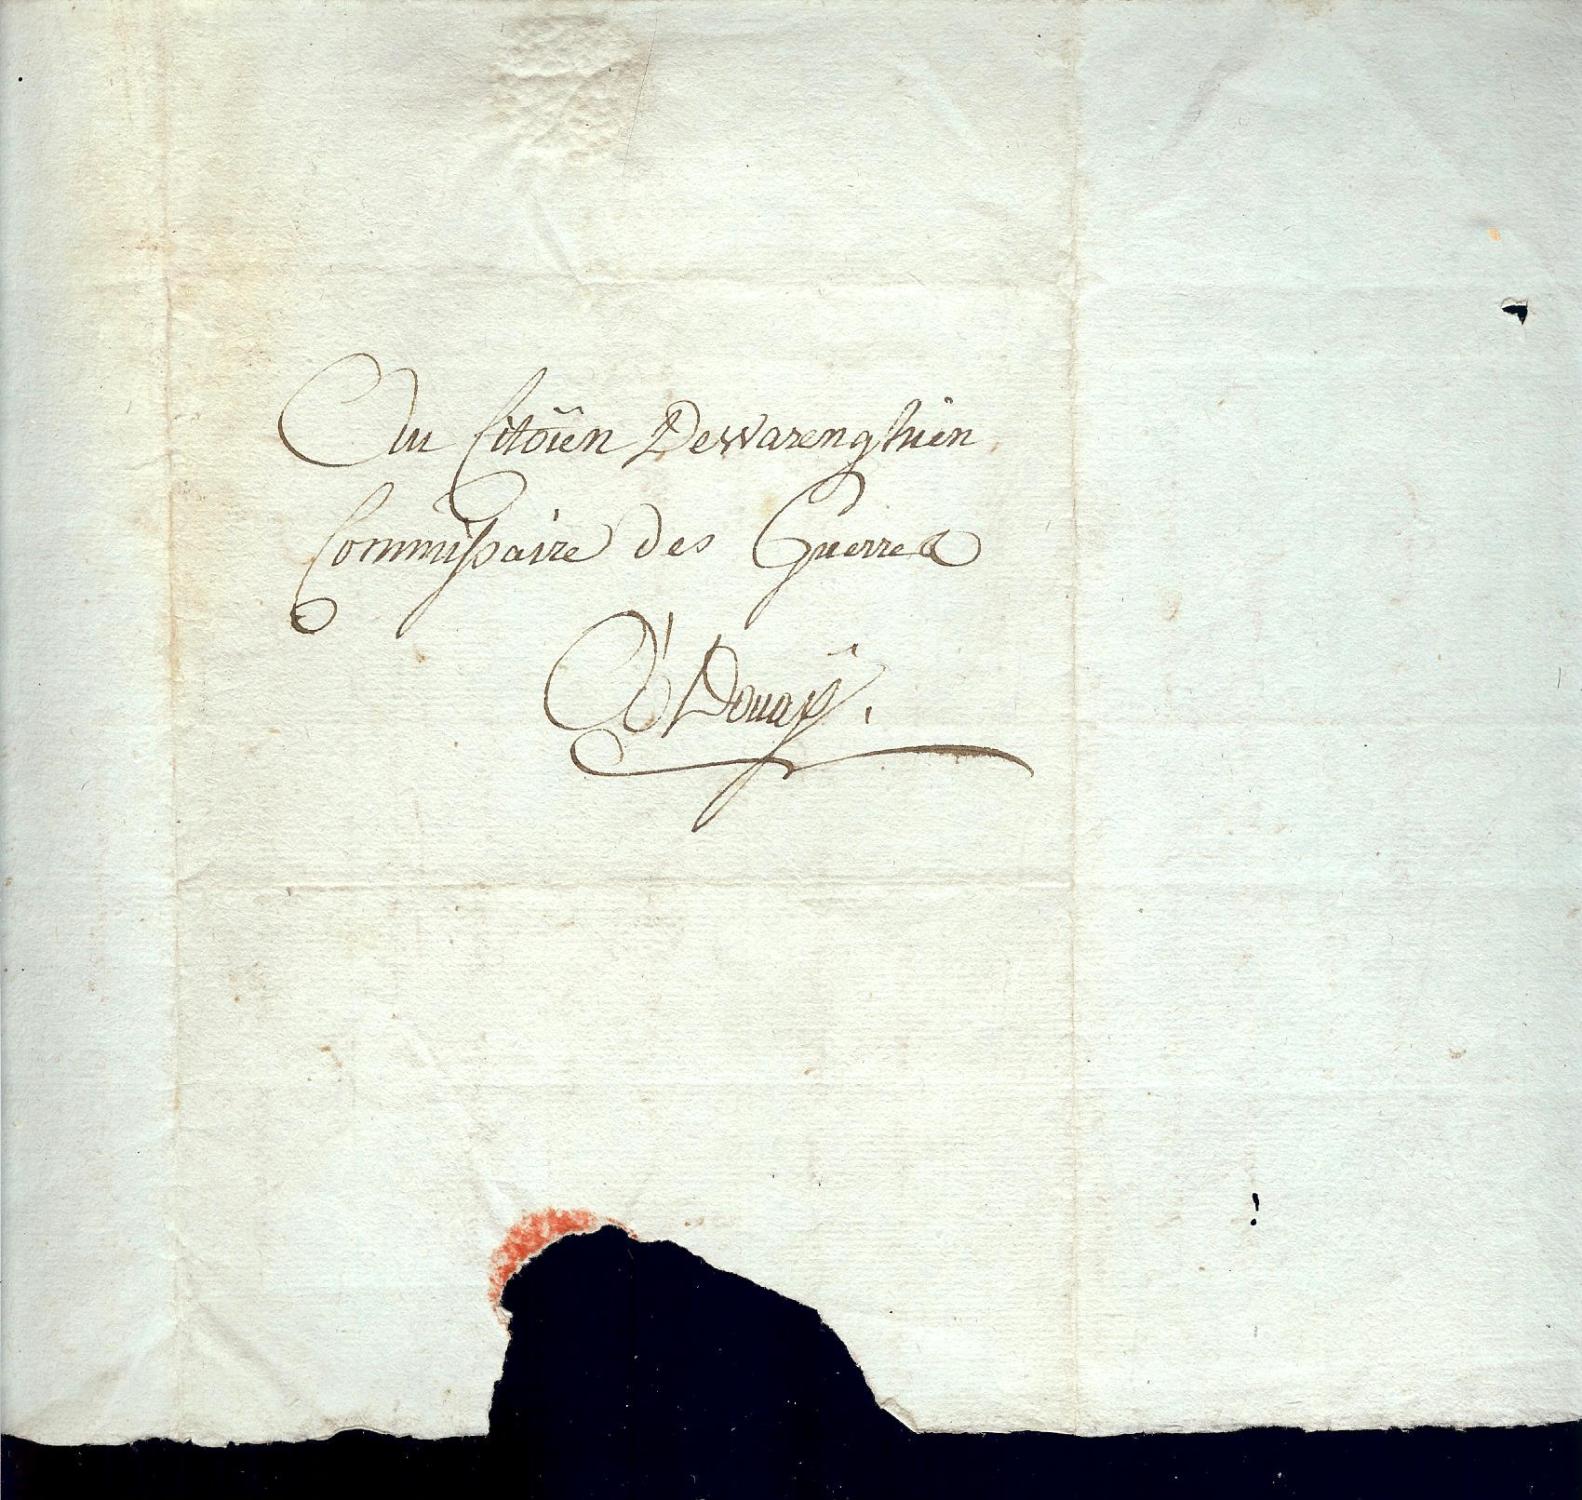 Au Citoïen Dewarenghien
Commissaire des Guerres
à Douaÿ.